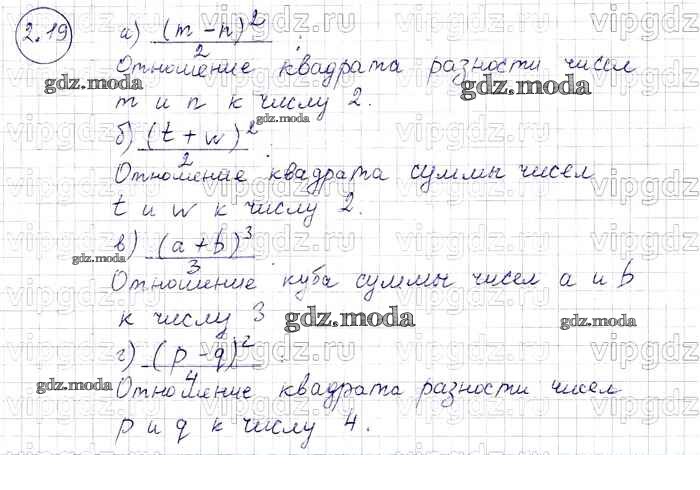 2.19 а) (m - n)² / 2 ;
Отношение квадрата разности чисел
m и n к числу 2.
б) (t + w)² / 2 .
Отношение квадрата суммы чисел
t и w к числу 2.
в) (a + b)³ / 3
Отношение куба суммы чисел a и b
к числу 3
г) (p - q)² / 4 .
Отношение квадрата разности чисел
p и q к числу 4.
gdz.moda
gdz.moda
gdz.moda
gdz.moda
gdz.moda
gdz.moda
vipgdz.ru